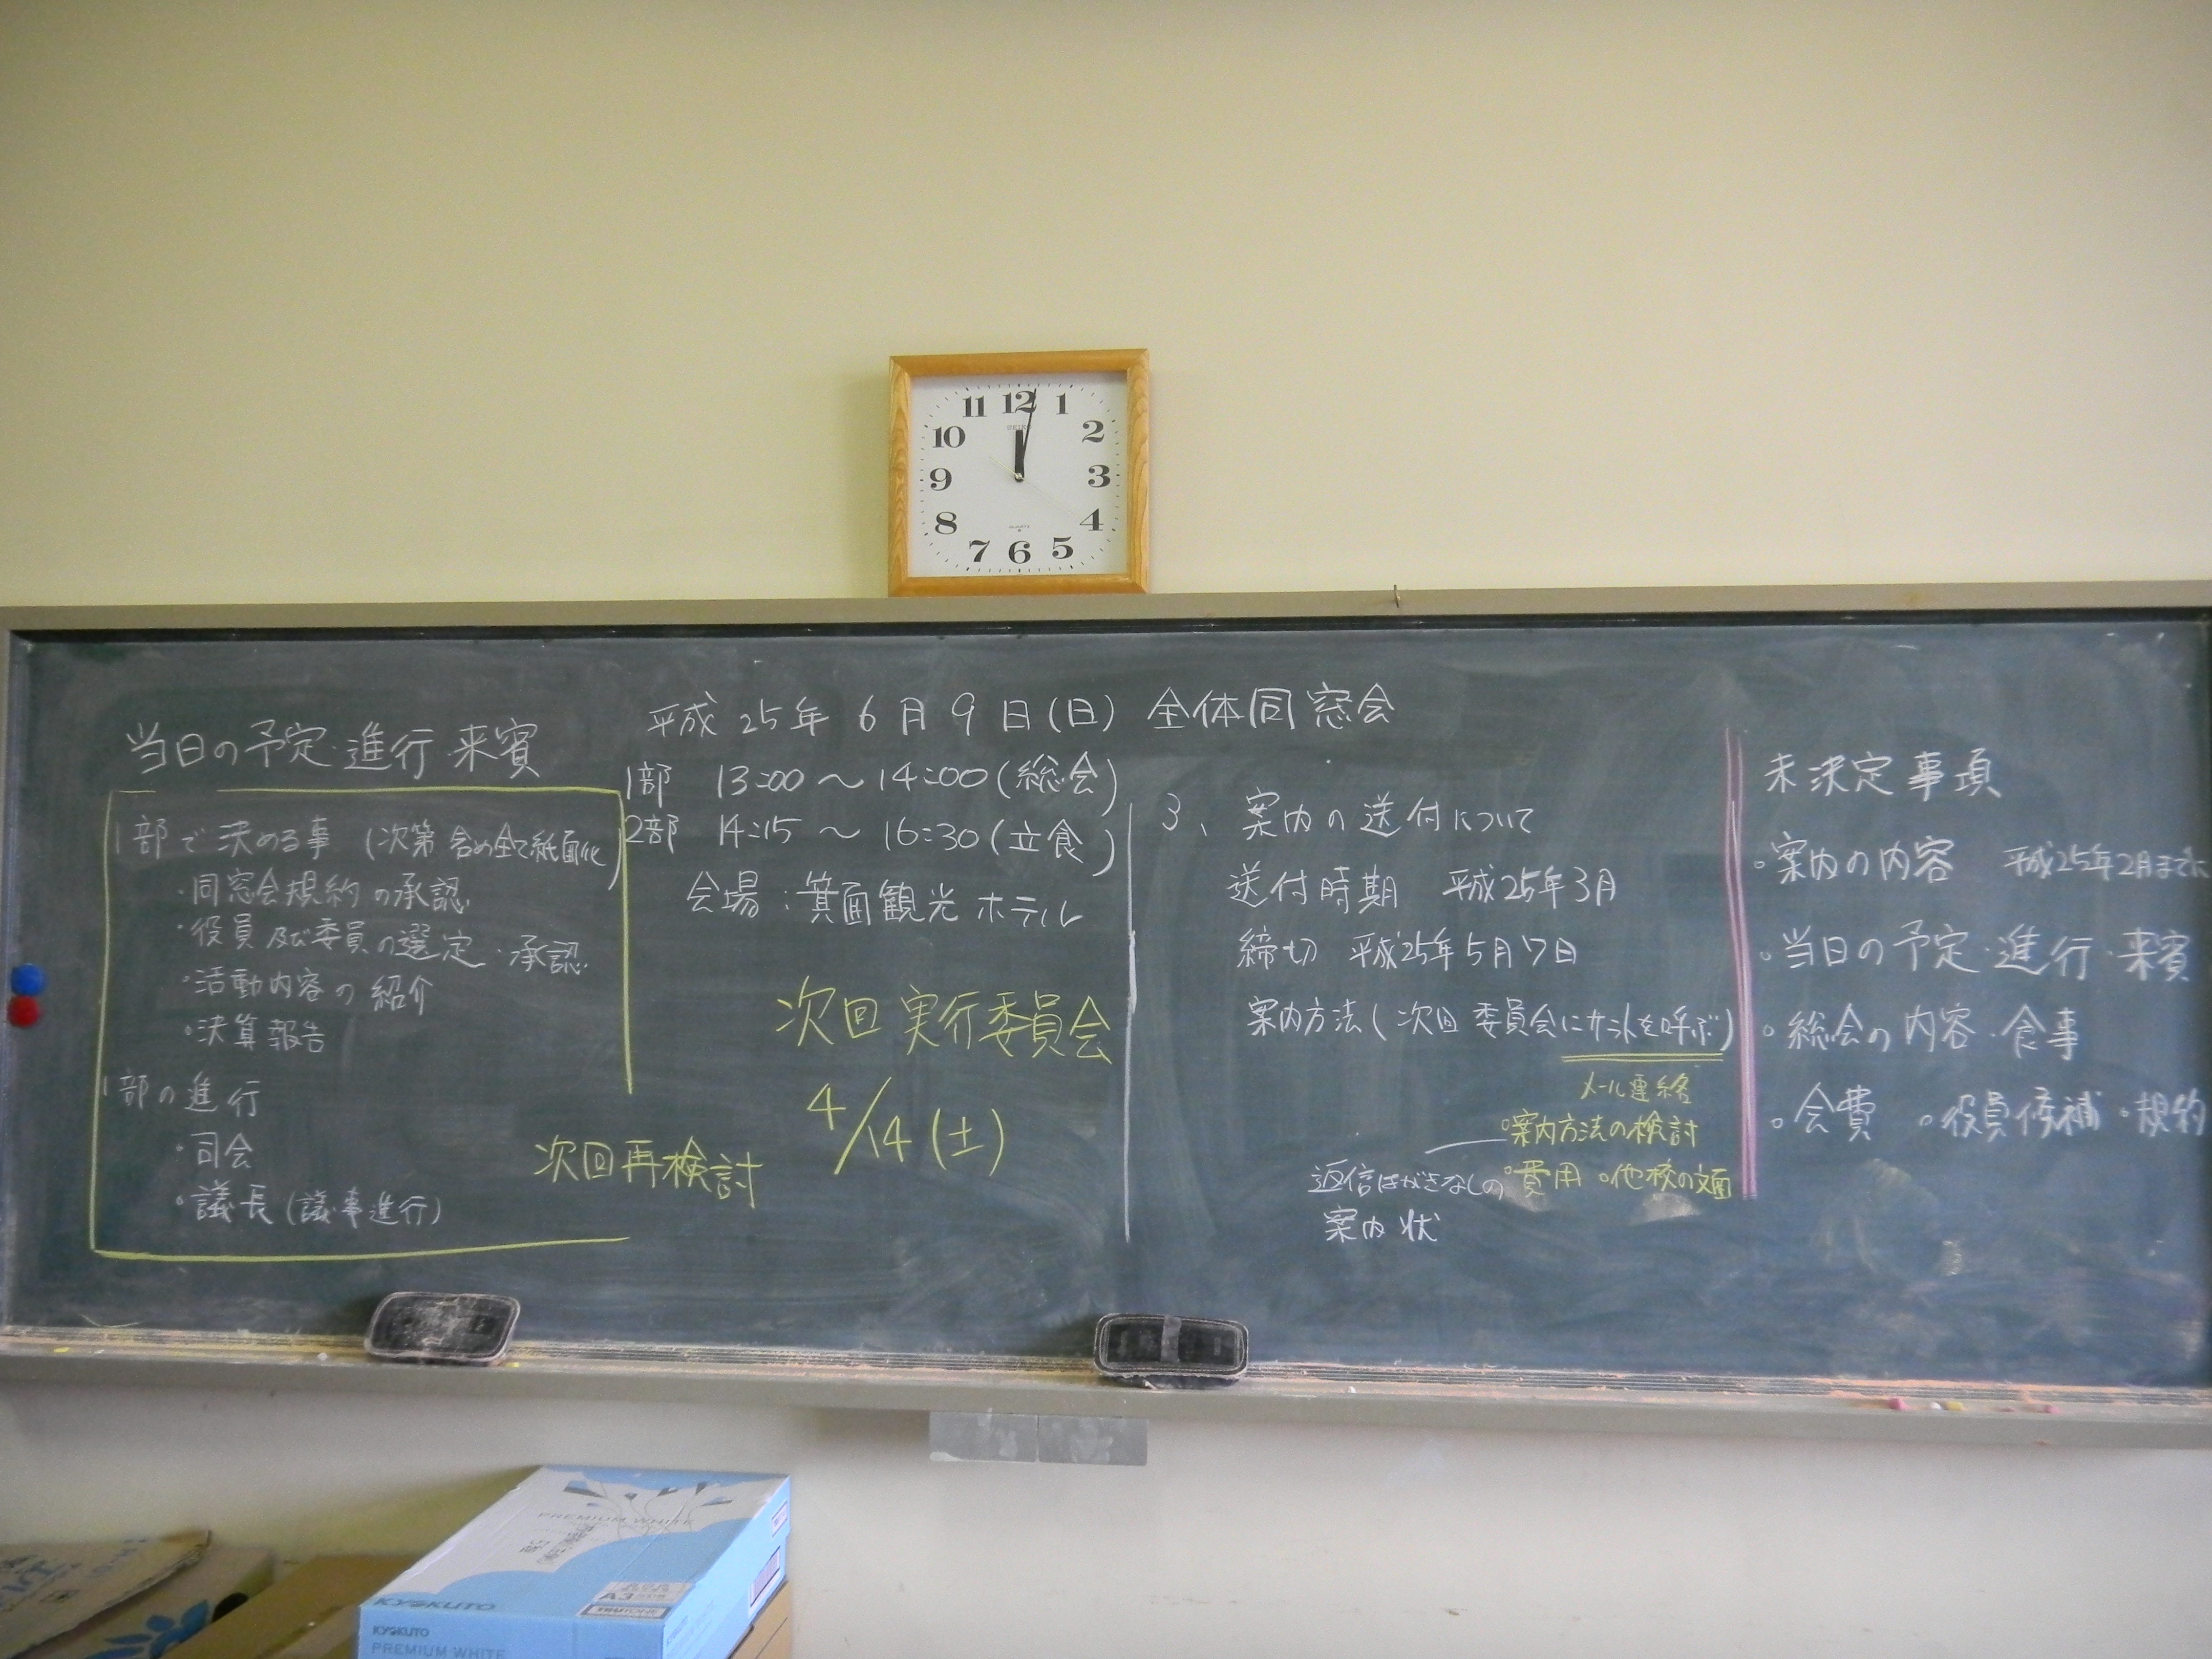 11 12 1
10 2
9 3
8 4
7 6 5
SEIKO
QUARTZ
平成25年6月9日(日) 全体同窓会
当日の予定・進行・来賓
1部で決める事 (次第含め全て紙面化)
・同窓会規約の承認
・役員及び委員の選定・承認
・活動内容の紹介
・決算報告
1部の進行
・司会
・議長(議事進行)
次回再検討
1部 13:00～14:00(総会)
2部 14:15～16:30(立食)
会場:箕面観光ホテル
次回実行委員会
4/14(土)
3、案内の送付について
送付時期 平成25年3月
締切 平成25年5月7日
案内方法(次回委員会にサラトを呼ぶ)
メール連絡
・案内方法の検討
・費用 ・他校の文面
返信はがきなしの
案内状
未決定事項
・案内の内容 平成25年2月までに
・当日の予定・進行・来賓
・総会の内容・食事
・会費 ・役員候補 ・規約
PREMIUM WHITE
A3
KYOKUTO
KYOKUTO
PREMIUM WHITE